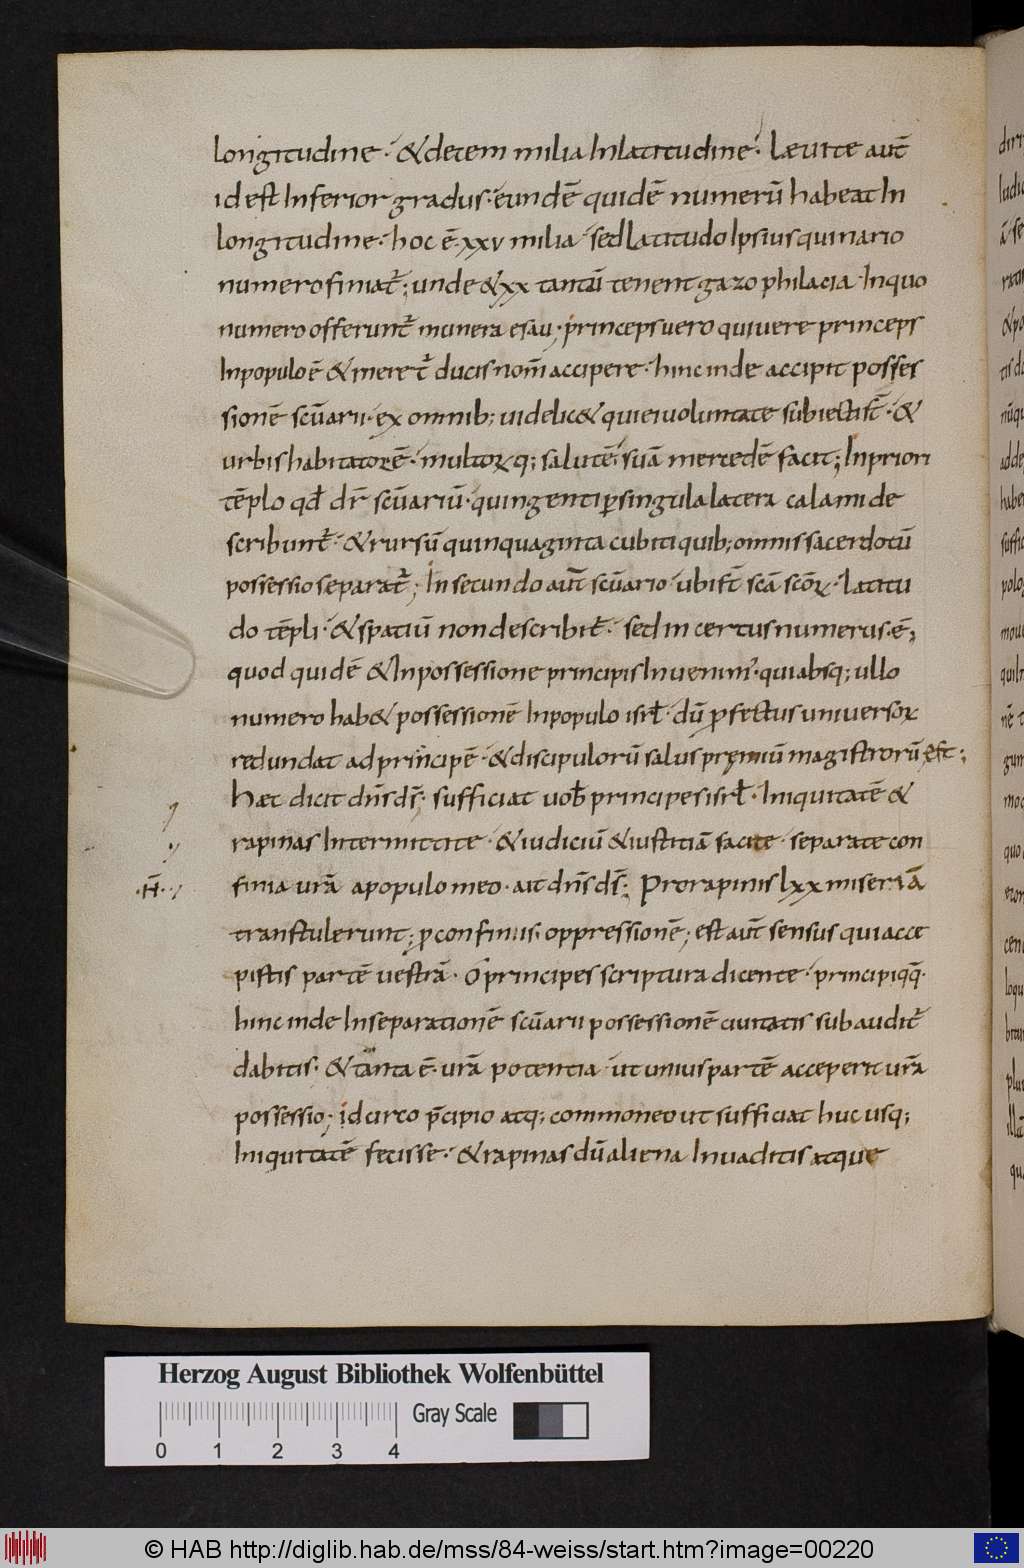 longitudine· &decem milia Inlatitudine· Laeuitę aut̄
id est Inferior gradus· eundē quidē numerū habeat In
longitudine· hoc ē· xxv milia sedLatitudo Ipsius quinario
numero finiat᷒; unde &xx tantū tenent gazophilacia Inquo
numero offerunt᷒ munera esau; princeps uero quiuere princeps
Inpopulo ē &meret᷒ ducis nom̄ accipere· hinc inde accipit posses
sionē scūarii· ex omnib; uidelic& quieiuoluntate subiectis·̄ &
urbis habitatorē· multorūq; salutē suā mercedē facit; Inpriori
tēplo qđ dr̄ scūariū· quingenti ꝑsingula latera calami de
scribunt᷒· &rursū quinquaginta cubiti quib; omnis sacerdotū
possessio separat᷒; In secundo aut̄ scūario ubi st̄ scā scōꝝ· Latitu
do tēpli· &spatiū non describit᷒· sed incertus numerus ē;
quod quidē &Inpossessione principis Inuenim᷒· quiabsq; ullo
numero hab& possessionē Inpopulo isrł· dū ꝑfectus uniuersoꝝ
redundat ad principē· &discipulorū salus pręmiū magistrorū est;
Haec dicit dn̄s ds̄; sufficiat uob̄ principes isrł· Iniquitatē &
rapinas Intermittite· &iudiciū &iustitiā facite· separate con
finia ur̄a apopulo meo· ait dn̄s ds̄; Prorapinis lxx miseriā
transtulerunt; ꝓconfiniis· oppressionē; est aut̄ sensus quiacce
pistis partē uestrā· O principes scriptura dicente· principiqq̄·
hinc inde Inseparationē scūarii possessionē ciuitatis subaudit᷒
dabitis· &tanta ē· ur̄a potentia· ut unius partē acceperit ur̄a
possessio; idcirco p̄cipio atq; commoneo ut sufficiat huc usq;
Iniquitatē fecisse· &rapinas dū aliena Inuaditis atque
·H̄·
Herzog August Bibliothek Wolfenbüttel
Gray Scale
0 1 2 3 4
© HAB http://diglib.hab.de/mss/84-weiss/start.htm?image=00220